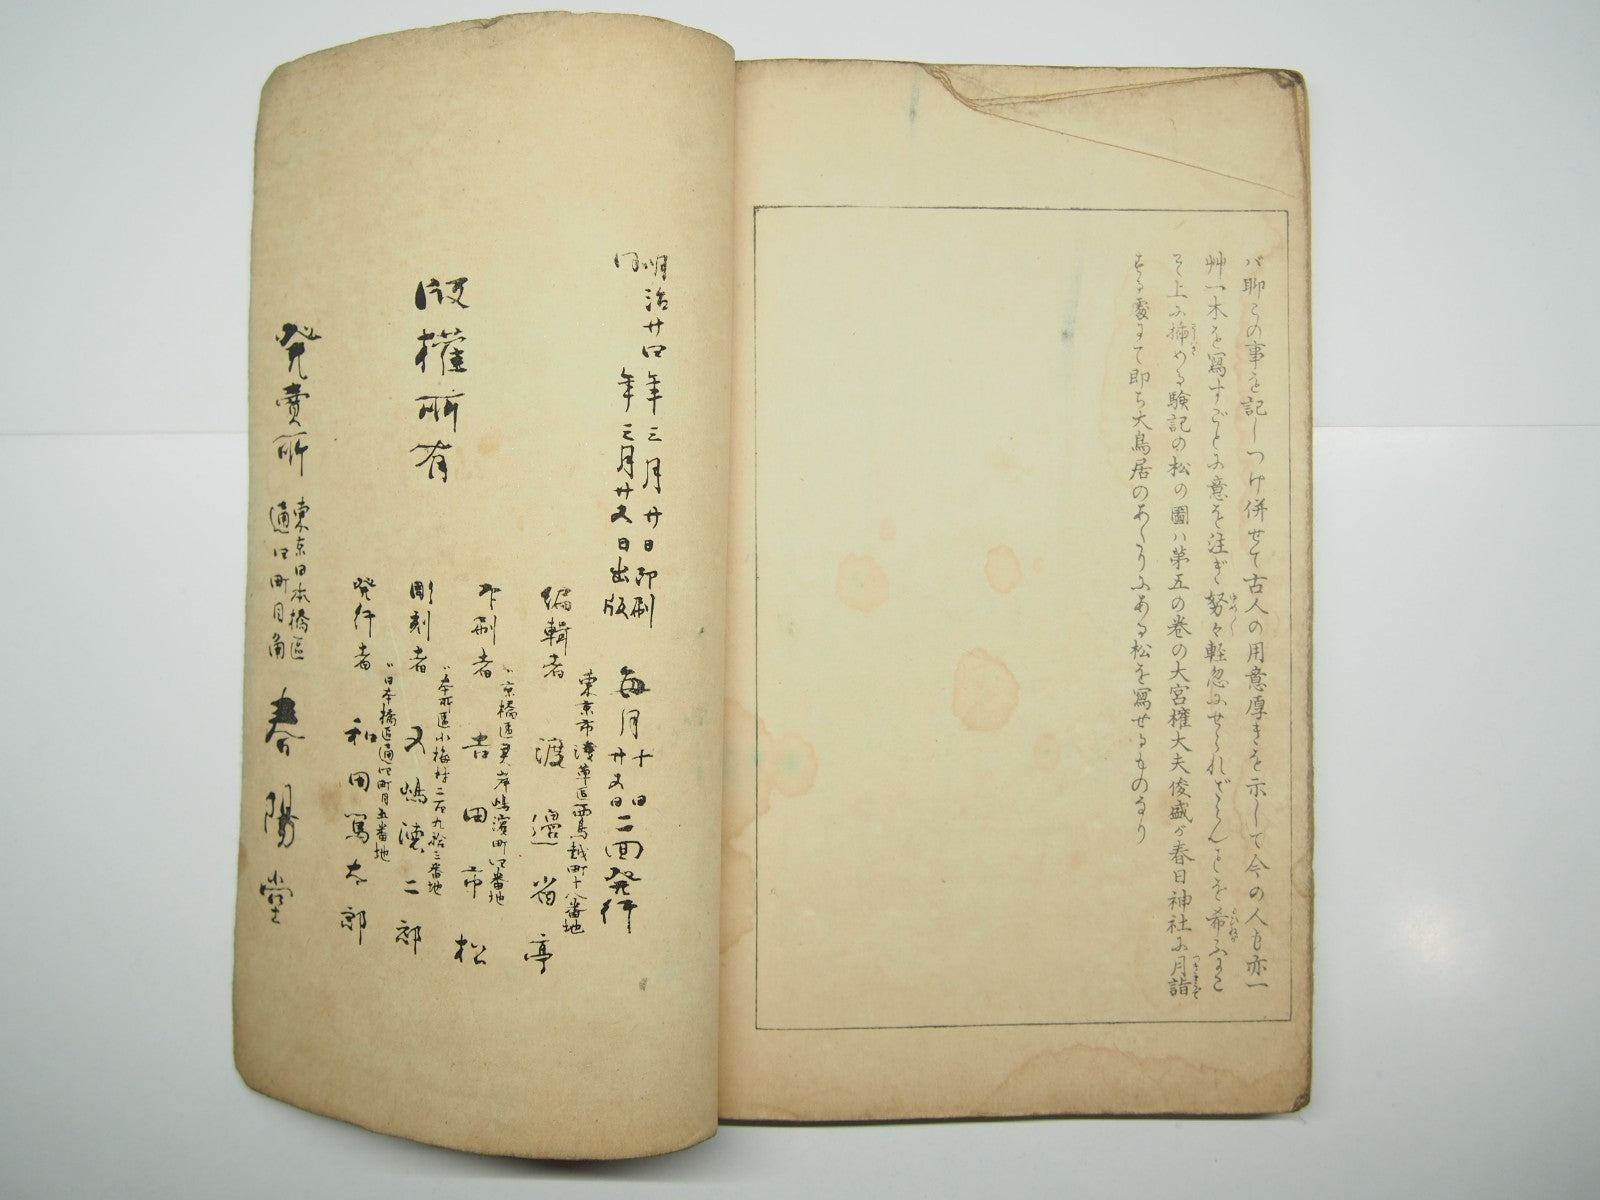 バ聊この事を記しつけ併せて古人の用意厚きを示して今の人も亦一
艸一木を寫すごとに意を注ぎ努々軽忽にせられざらんことを希ふになん
そ上に挿める験記の松の圖ハ第五の巻の大宮權大夫俊盛が春日神社に月詣
する處にて即ち大鳥居のあたりにある松を寫せるものなり
明治廿四年三月廿日印刷
同年三月廿又日出版
毎月十日
廿又日二回発行
編輯者
東京市淺草区西鳥越町十八番地
渡邊省亭
印刷者
〃京橋區霊岸嶋濱町四番地
吉田市松
彫刻者
〃本所區小梅村二百九拾三番地
又嶋徳二郎
発行者
〃日本橋区通四町目五番地
和田篤太郎
版權所有
発賣所
東京日本橋區
通四町目角
春陽堂